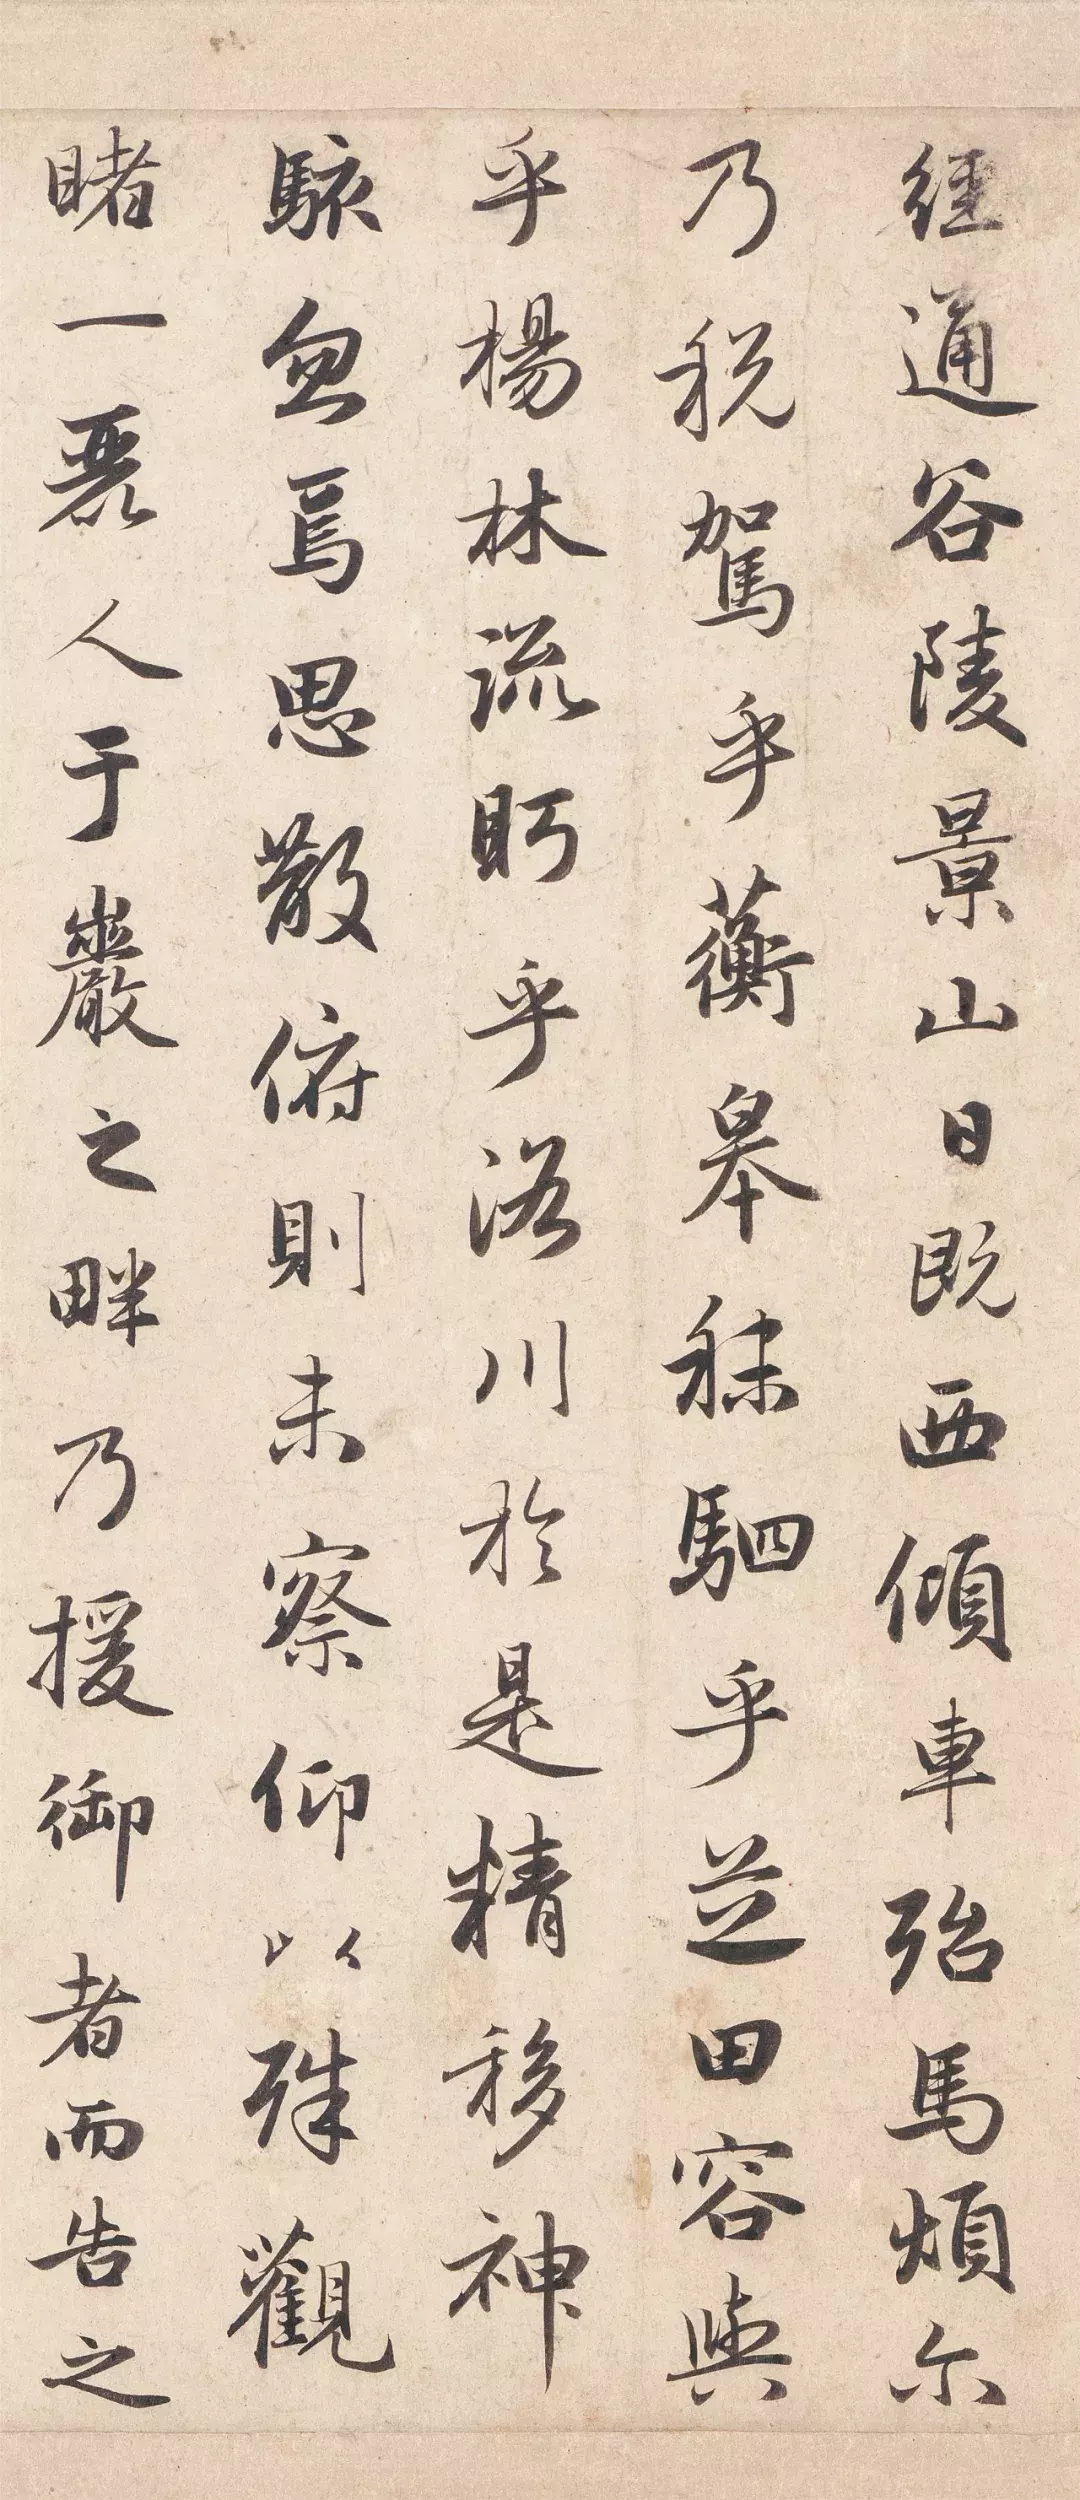 經通谷陵景山日既西傾車殆馬煩尓
乃税駕乎蘅皋秣駟乎芝田容與
乎楊林流眄乎洛川於是精移神
駭忽焉思散俯則未察仰以殊觀
睹一麗人于巖之畔乃援御者而告之